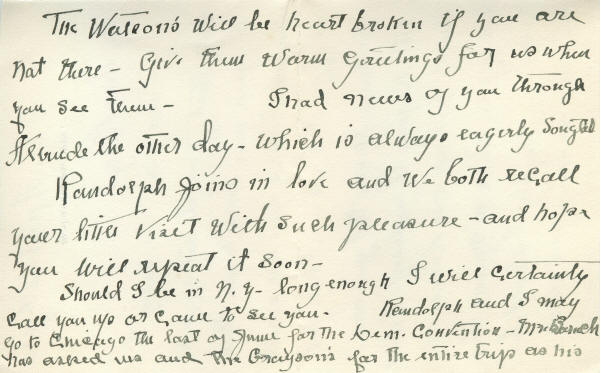 The Watson's will be heart broken if you are
not there - Give them warm greetings for us when
you see them - I had news of you through
the other day - which is always eagerly sought
Randolph joins in love and we both recall
your little visit with such pleasure - and hope
you will repeat it soon -
Should I be in N.Y. long enough I will certainly
call you up or come to see you. Randolph and I may
go to Chicago the last of June for the Dem. Convention -
has asked us and the Grayson's for the entire trip as his